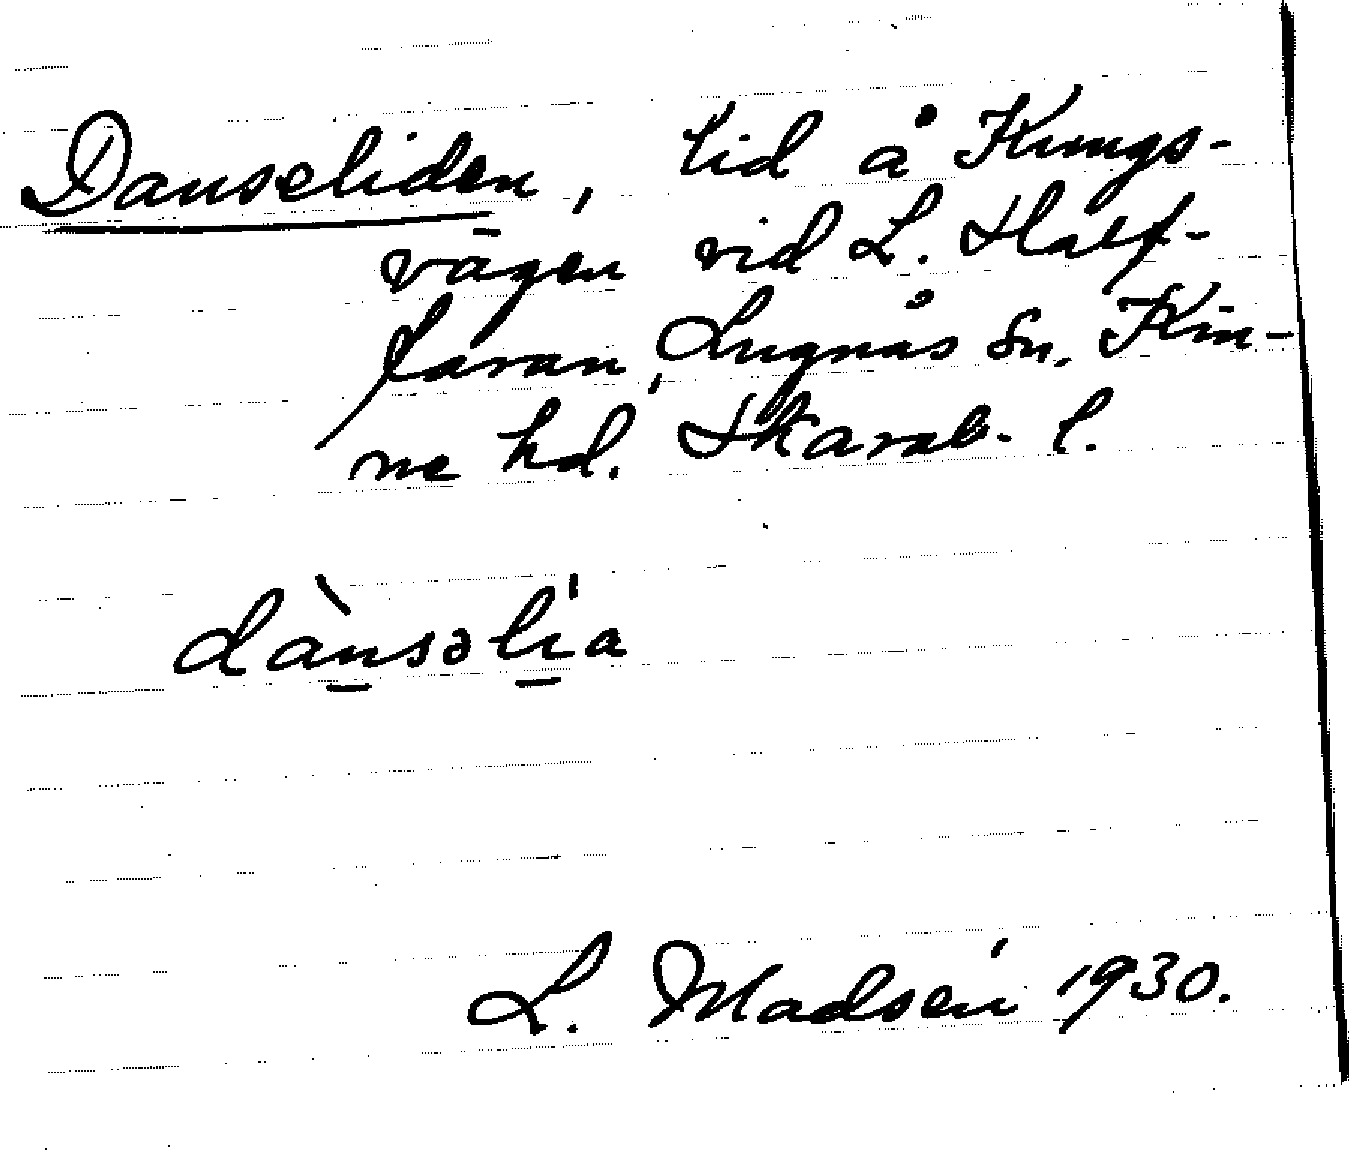 Danseliden, lid å Kungs-
vägen vid L. Half-
faran, Lugnås Sn, Kin-
ne hd. Skarab. l.
dànsəlia
L. Madsén 1930.